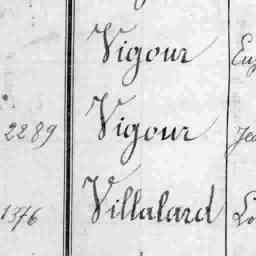 Vigour Eug
2289 Vigour Jea
1376 Villalard Lo